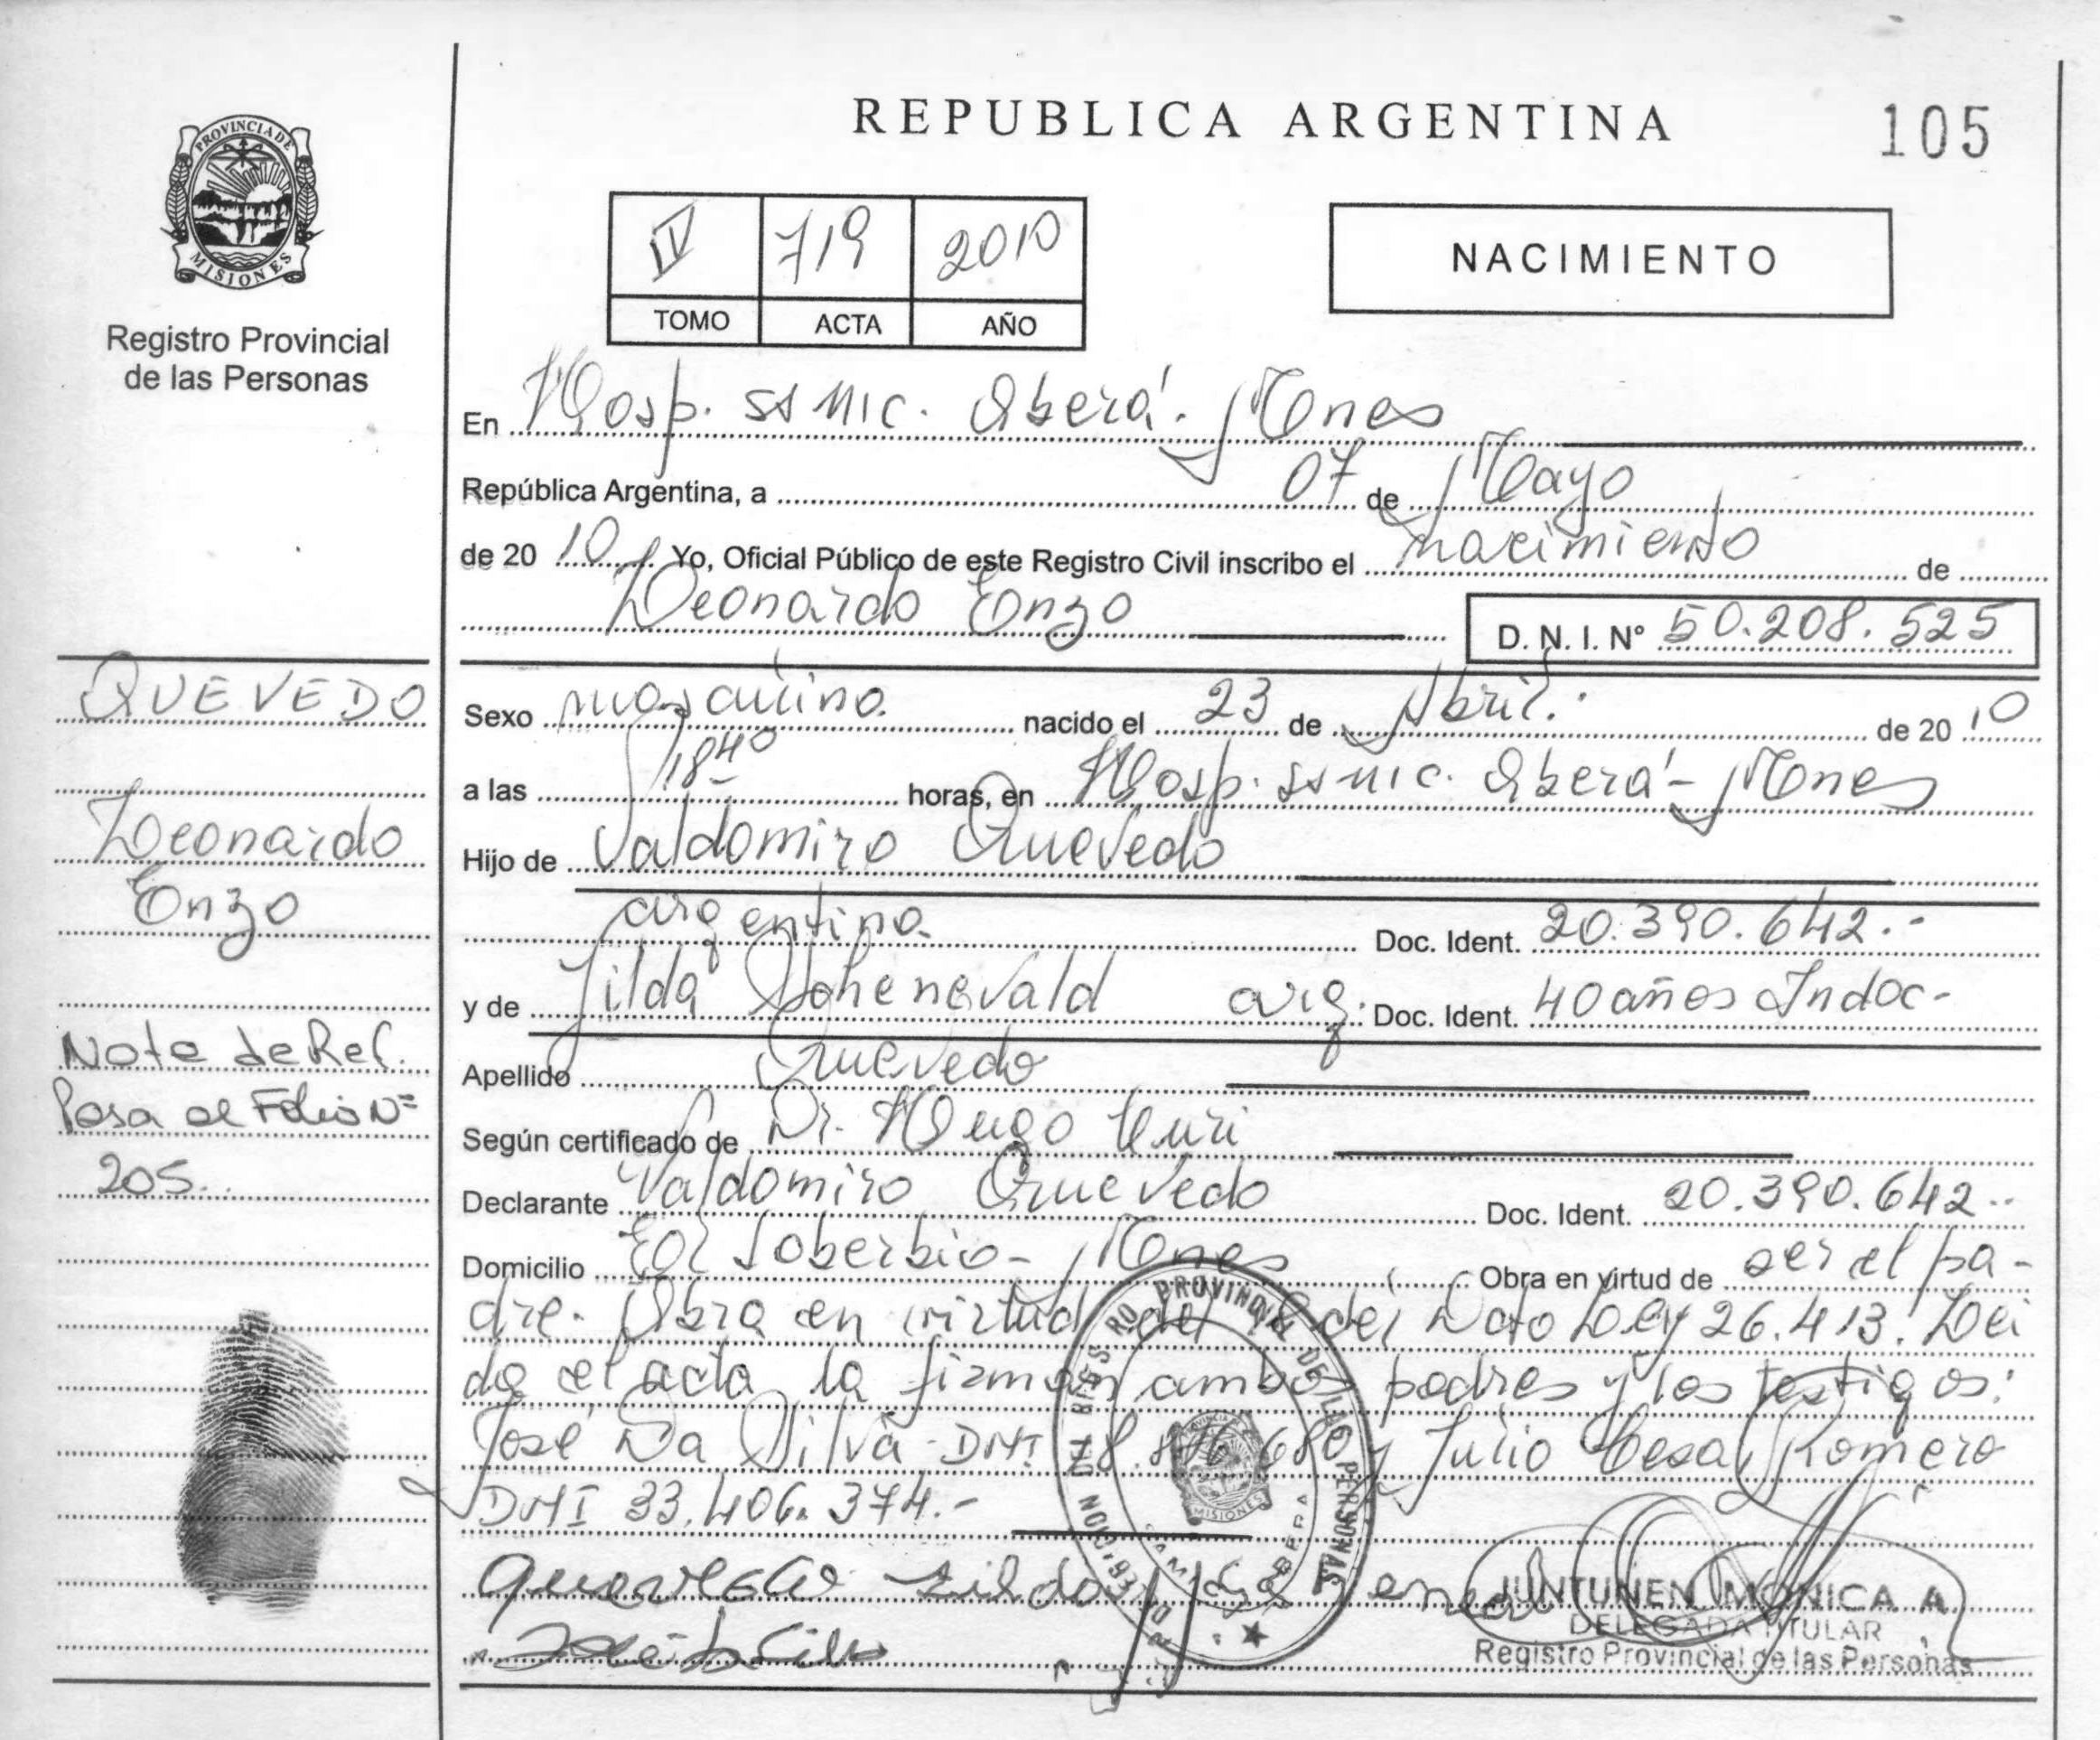 REPUBLICA ARGENTINA
105
PROVINCIA DE
MISIONES
Registro Provincial
de las Personas
719 2010
TOMO ACTA AÑO
NACIMIENTO
En Hosp. SSMIC. Oberá. Mnes
República Argentina, a 07 de Mayo
de 20 10 Yo, Oficial Público de este Registro Civil inscribo el nacimiento de
Leonardo Enzo
D. N. I. N° 50.208.525
QUEVEDO
Leonardo
Enzo
Nota de Ref.
Pasa al Folio Nº
205
Sexo masculino nacido el 23 de Abril. de 20 10
a las 18 40 horas, en Hosp. SSMIC. Oberá - Mnes
Hijo de Valdomiro Quevedo
argentino. Doc. Ident. 20.390.642.-
y de Arg. Doc. Ident. 40 años Indoc-
Apellido Quevedo
Según certificado de Dr. Hugo
Declarante Valdomiro Quevedo Doc. Ident. 20.390.642.-
Domicilio El Soberbio - Mnes Obra en virtud de ser el pa-
dre. Obra en virtud del Ley 26.413. Lei
do el acta la firman ambos padres y los testigos:
José Da Silva - DNI y Julio Cesar Romero
DNI 33.406.374.-
JUNTUNEN MONICA A
DELEGADA TITULAR
Registro Provincial de las Personas